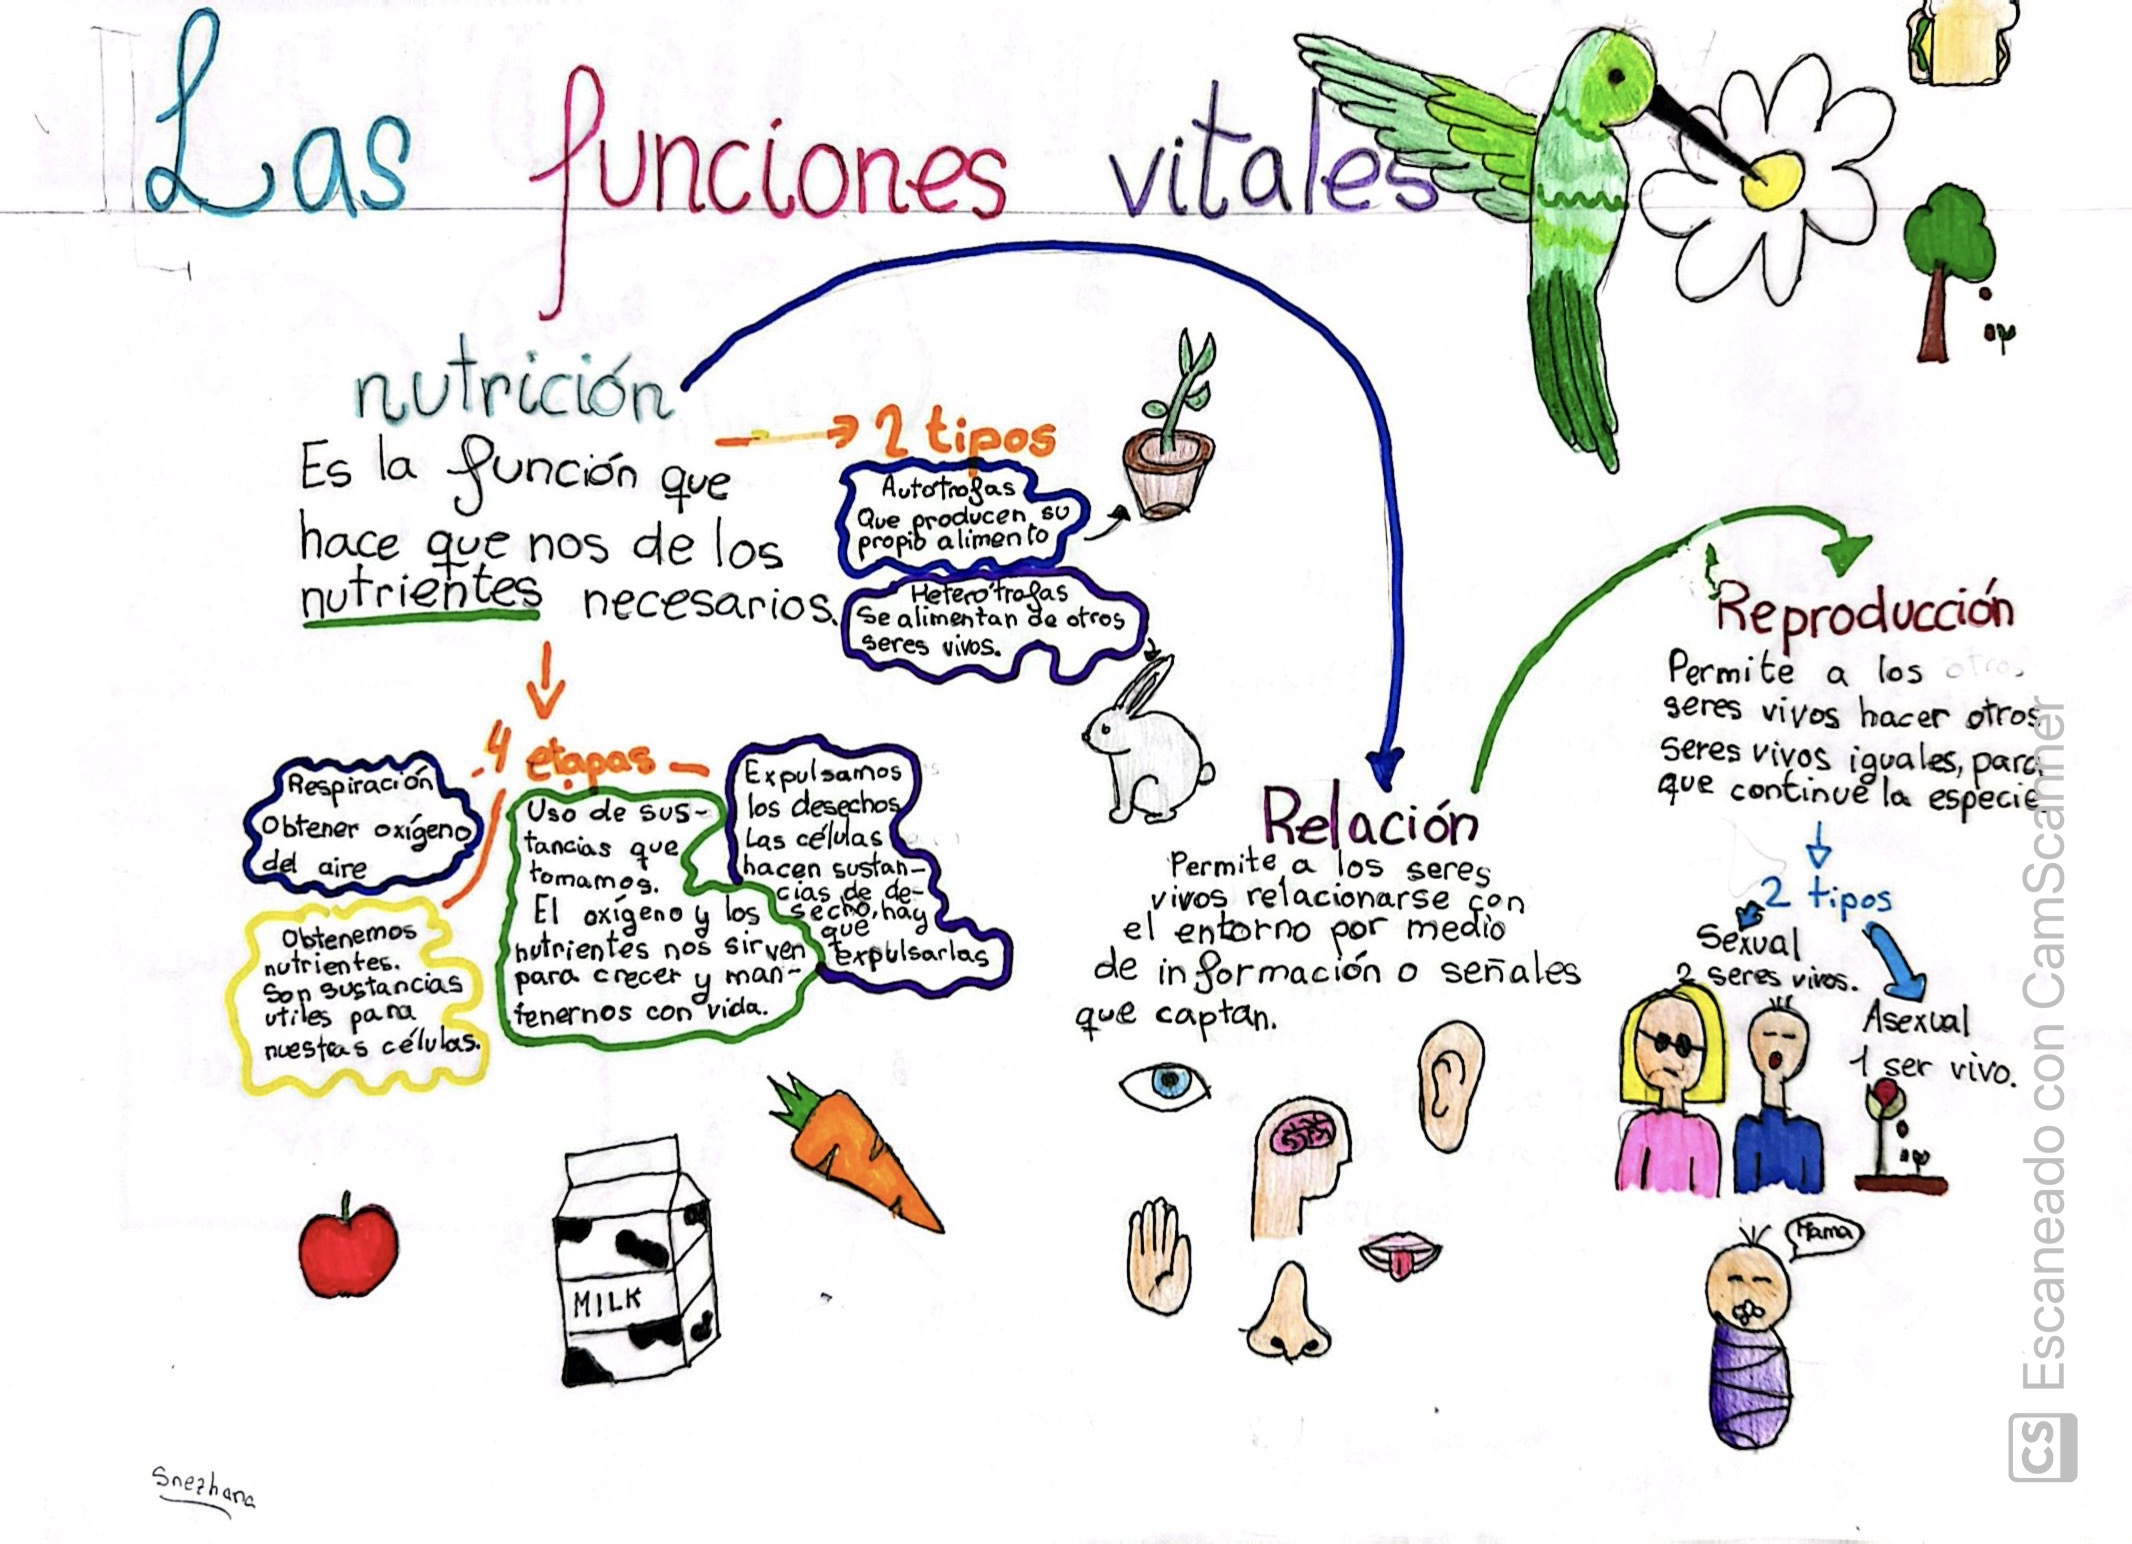 Las funciones vitales
nutrición
Es la función que
hace que nos de los
nutrientes necesarios.
2 tipos
Autótrofas
Que producen su
propio alimento
Heterótrofas
Se alimentan de otros
seres vivos.
4 etapas
Respiración
Obtener oxígeno
del aire
Obtenemos
nutrientes.
Son sustancias
utiles para
nuestras células.
Uso de sus-
tancias que
tomamos.
El oxígeno y los
nutrientes nos sirven
para crecer y man-
tenernos con vida.
Expulsamos
los desechos
Las células
hacen sustan-
cias de de-
secho, hay
que
expulsarlas
MILK
Relación
Permite a los seres
vivos relacionarse con
el entorno por medio
de información o señales
que captan.
Reproducción
Permite a los otros
seres vivos hacer otros
seres vivos iguales, para
que continue la especie.
2 tipos
Sexual
2 seres vivos.
Asexual
1 ser vivo.
Mama
Snezhana
CS Escaneado con CamScanner